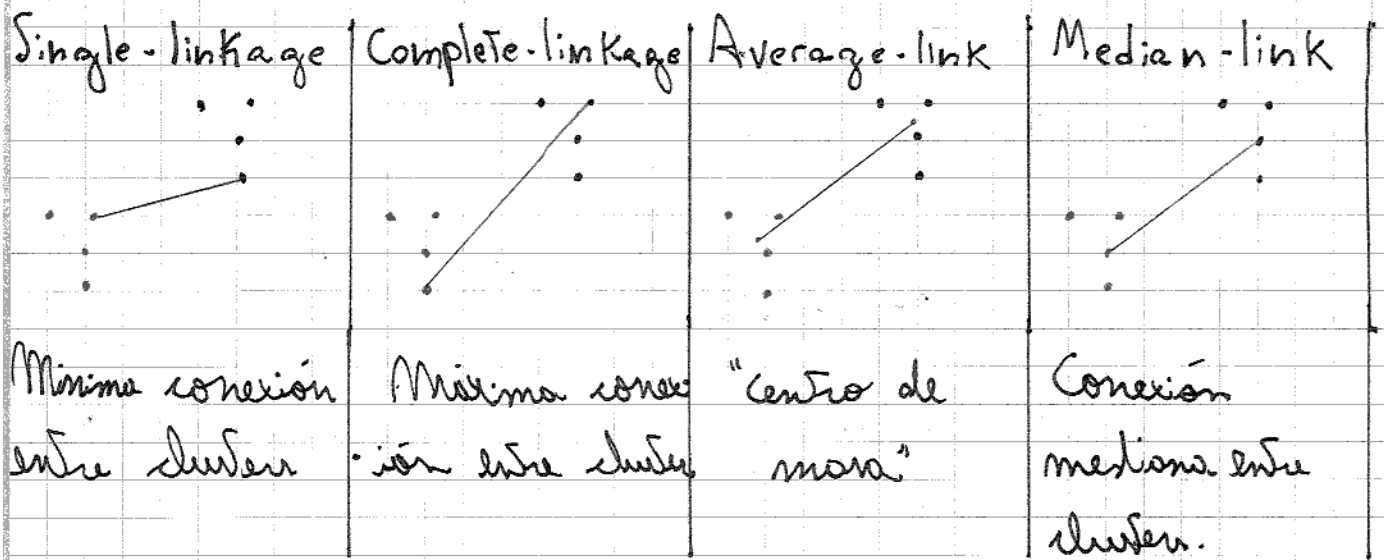 Single-linkage
Complete-linkage
Average-link
Median-link
Mínima conexión
entre clusters
Máxima conex
ión entre clusters
"centro de
masa"
Conexión
mediana entre
clusters.